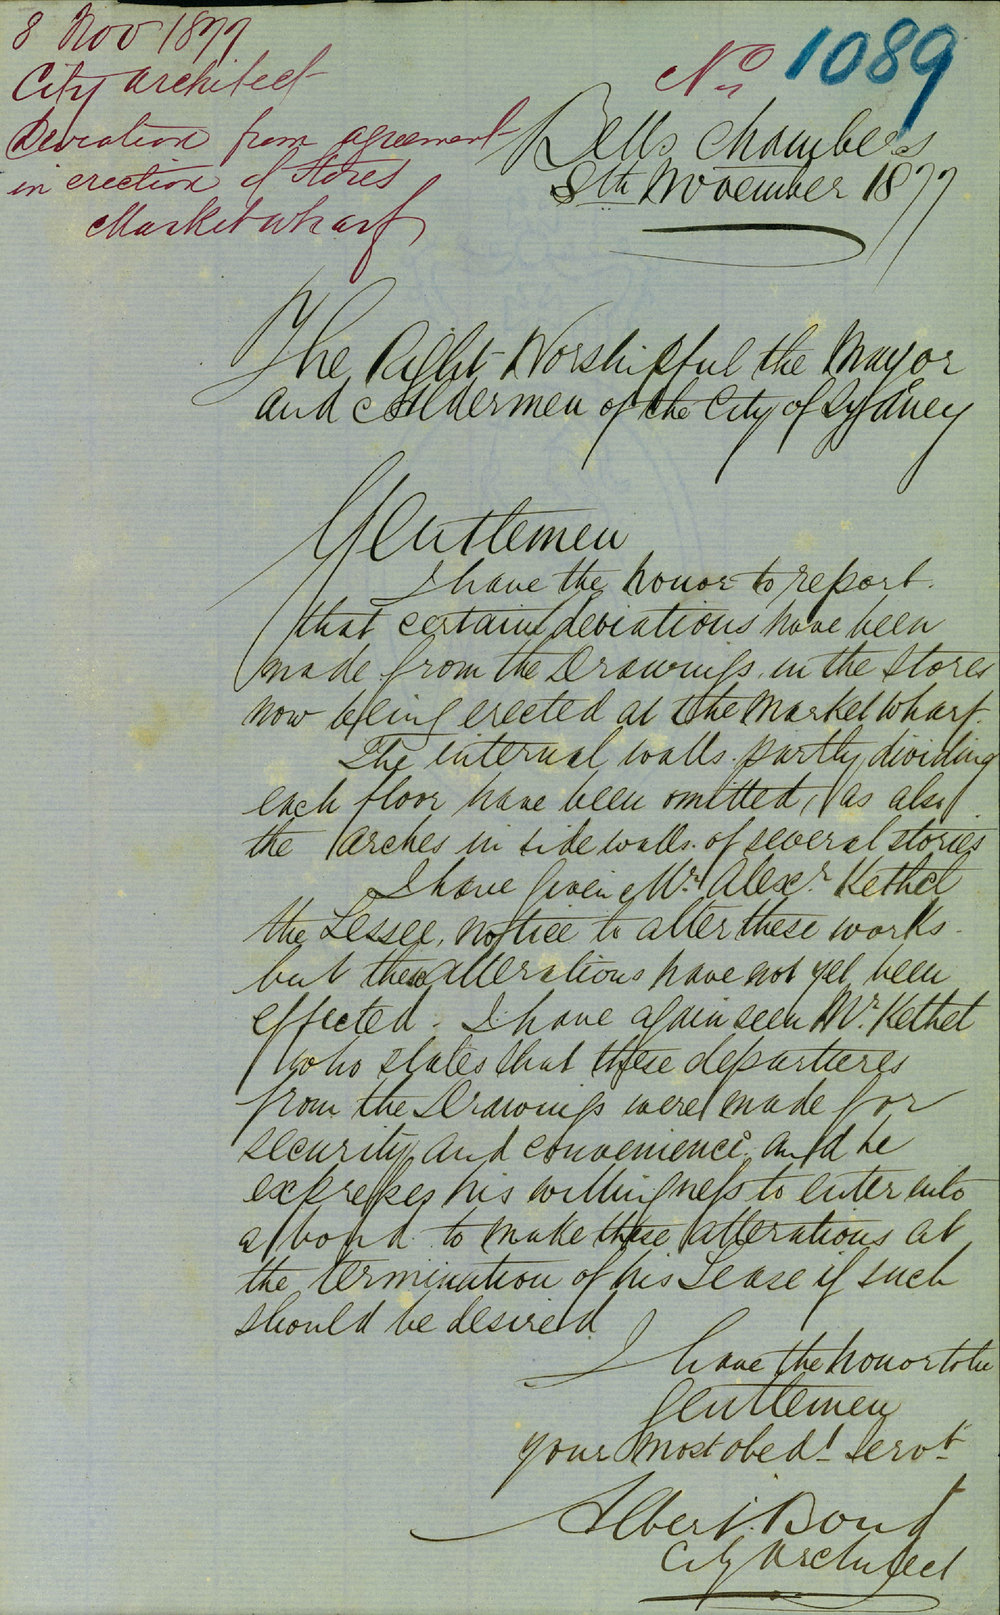 8 Nov 1877
City Architect
Deviation from agreement
in erection of Stores
Market Wharf
No 1089
Bells Chambers
8th November 1877
The Right Worshipful the Mayor
and Aldermen of the City of Sydney
Gentlemen
I have the honor to report
that certain deviations have been
made from the Drawings, in the Stores
now being erected at the Market Wharf.
The internal walls partly dividing
each floor have been omitted, as also
the arches in side walls of several stories
I have given Mr. Alexr. Kethel
the Lessee, notice to alter these works.
but these alterations have not yet been
effected. I have again seen Mr. Kethel
who states that these departures
from the Drawings were made for
security and convenience, and he
expresses his willingness to enter into
a bond to make these alterations at
the termination of his Lease if such
should be desired
I have the honor to be
Gentlemen
your most obedt. Servt.
Albert Bond
City Architect